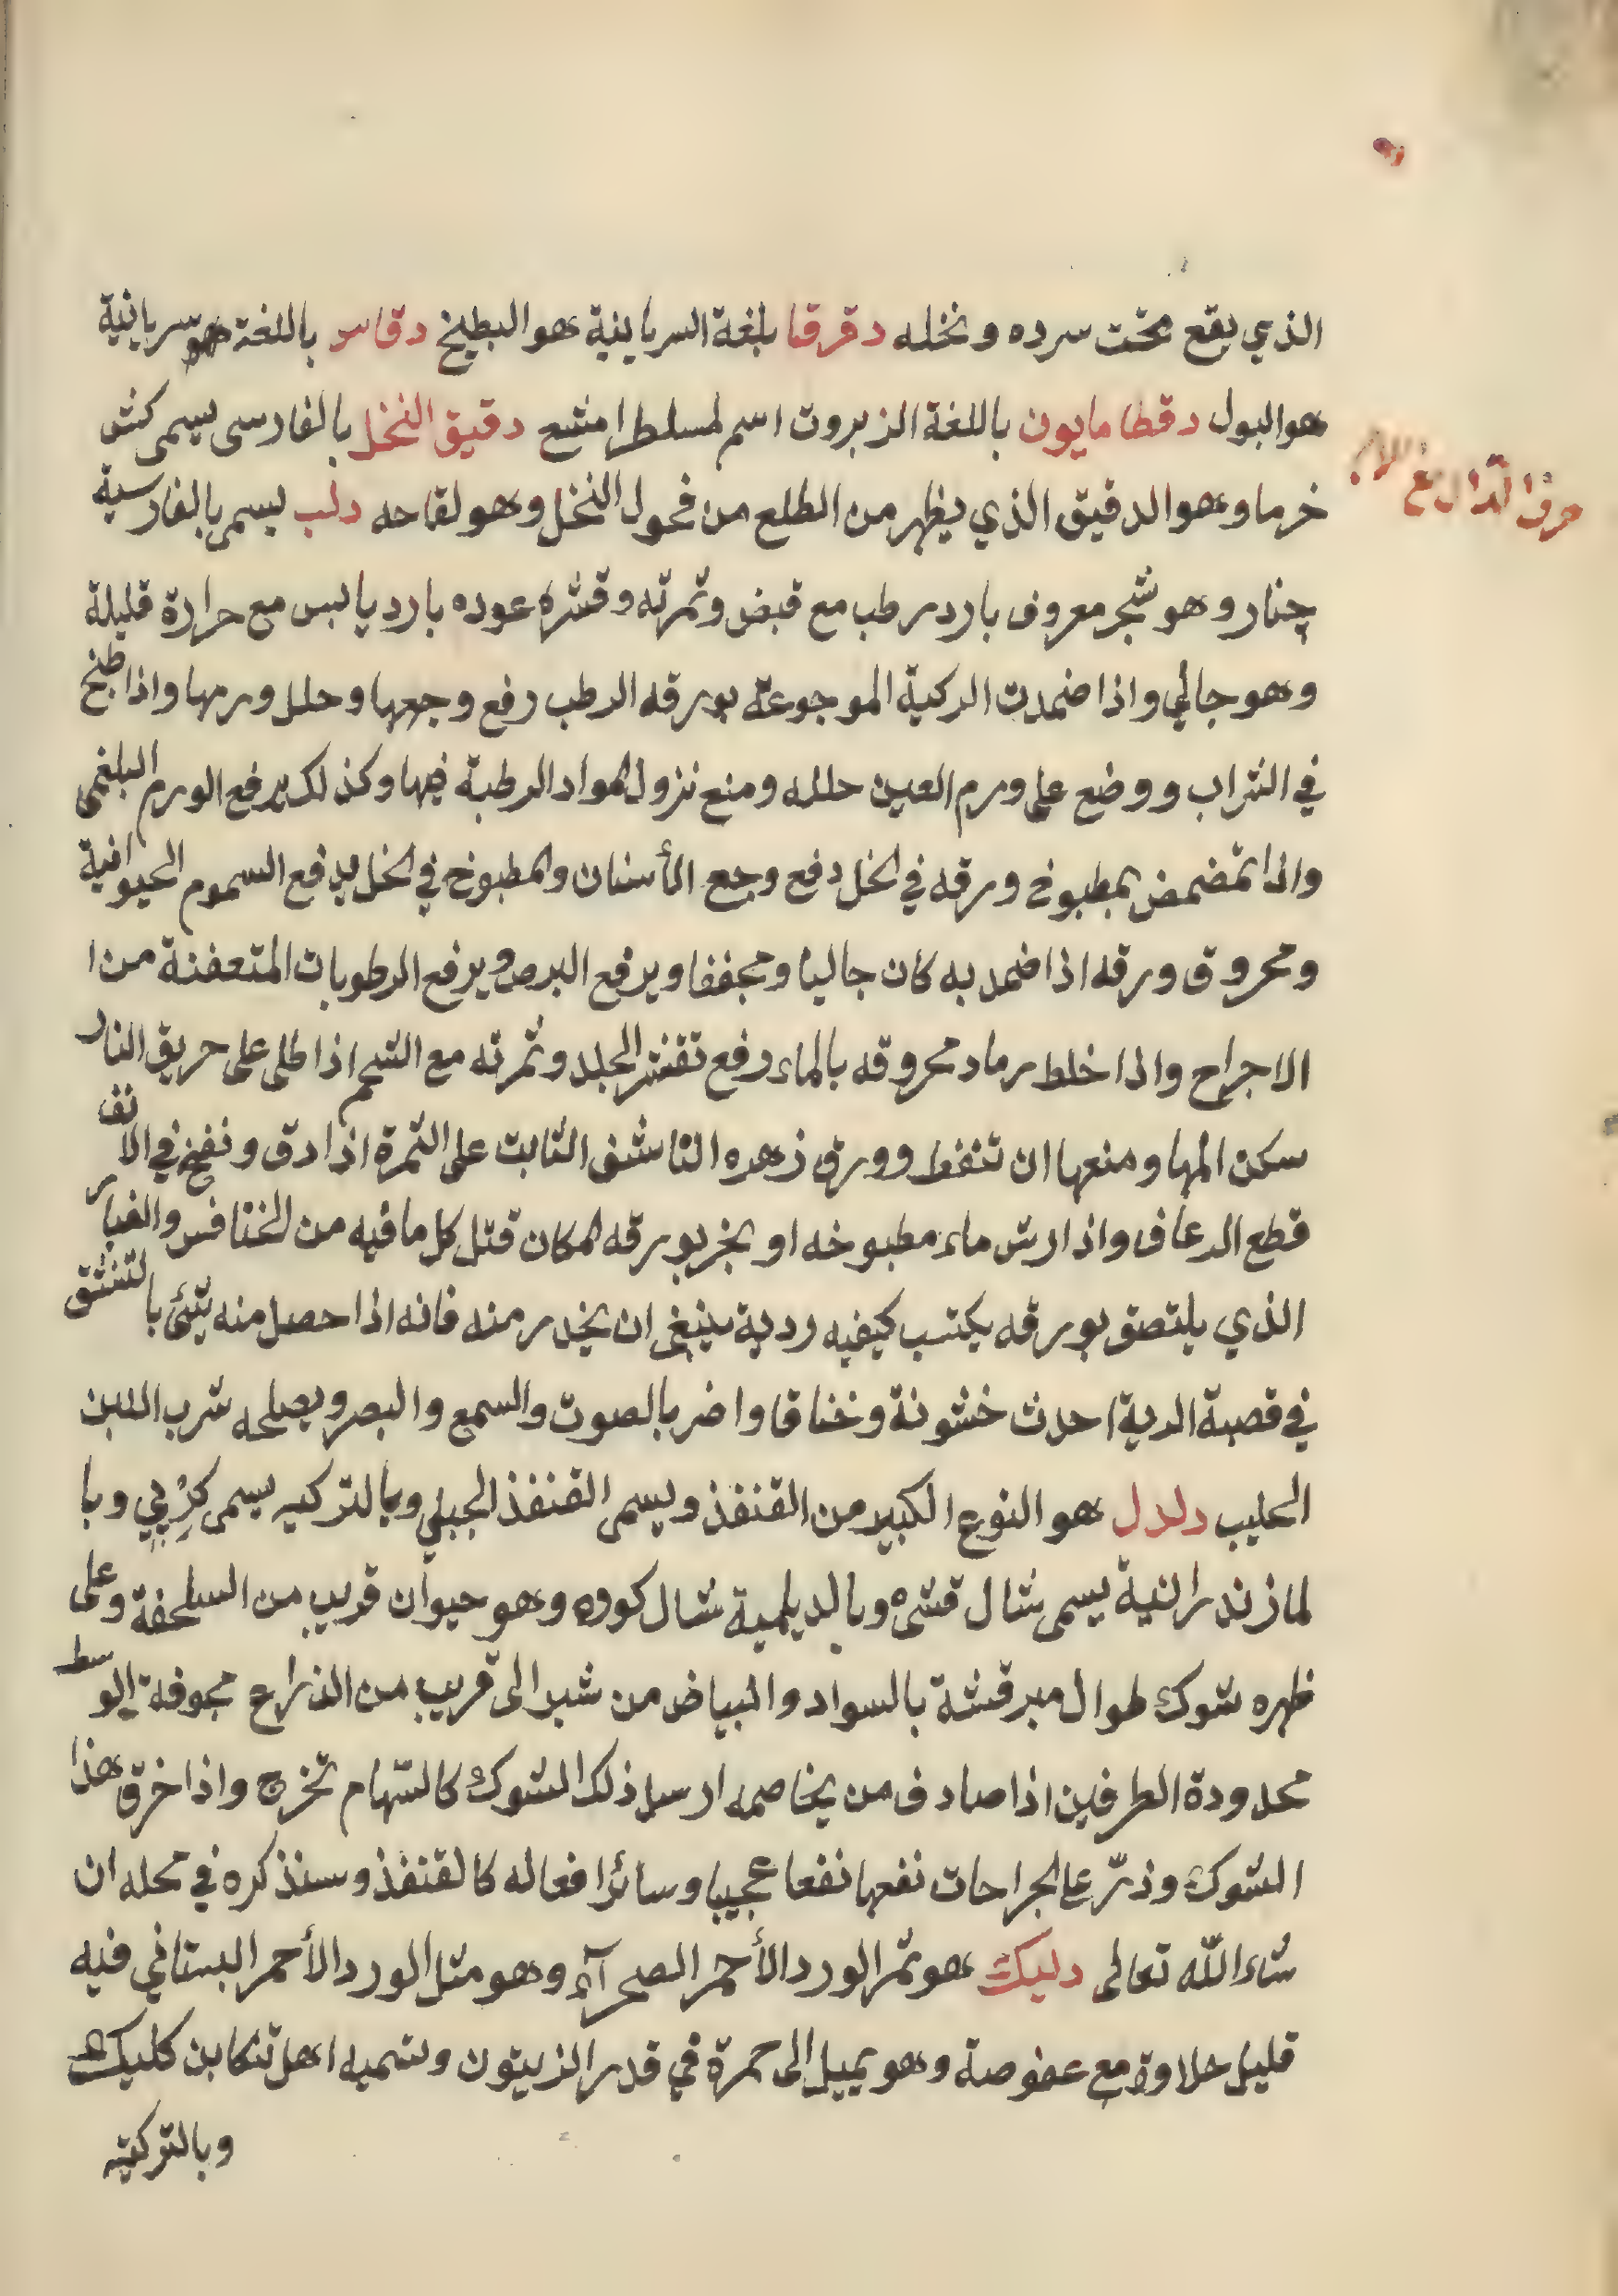 الذي يقع تحت سرده ونخله دقرقا بلغة السريانية هو البطيخ دقاس باللغة هو سريانية
هو البول دقطامايون باللغة الزبروت اسم لمسلطرامشع دقيق النخل بالفارسى يسمى كشن
حرف الدال مع اللام
خرما وهو الدقيق الذي يظهر من الطلع من فحول النخل وهو لقاحه دلب يسمى بالفارسية
چنار وهو شجر معروف بارد رطب مع قبض وثمرته وقشره عوده بارد يابس مع حرارة قليلة
وهو جالي واذا ضمدت الركبة الموجوعة بورقه الرطب رفع وجعها وحلل ورمها واذا طبخ
في الشراب ووضع على ورم العين حلله ومنع نزول المواد الرطبة فيها وكذلك يرفع الورم البلغمى
واذا تمضمض بمطبوخ ورقه في الخل دفع وجع الأسنان والمطبوخ في الخل يدفع السموم الحيوانية
ومحروق ورقه اذا ضمد به كان جاليا ومجففا ويرفع البرص ويرفع الرطوبات المتعفنة من ا
الاجراح واذا خلط رماد محروقه بالماء رفع تقشر الجلد وثمرته مع الشحم اذا طلى على حريق النار
سكن المها ومنعها ان تنفط وورق زهره الناشف الثابت على الثمرة اذا دق ونفخ في الانف
قطع الرعاف واذا رش ماء مطبوخه او بخر بورقه المكان قتل كل ما فيه من الخنافس والغبار
الذي يلتصق بورقه يكتسب كيفيه ردية ينبغى ان يحذر منه فانه اذا حصل منه شئ بالتنشق
في قصبة الرية احدث خشونة وخناقا واضر بالصوت والسمع والبصر ويصلحه شرب اللبن
الحليب دلدل هو النوع الكبير من القنفذ ويسمى القنفذ الجبلي وبالتركيه يسمى كِرْپي وبا
لمازندرانية يسمى شال قشى وبالديلمية شال كووه وهو حيوان قريب من السلحفة وعلى
ظهره شوك طوال مبرقشة بالسواد والبياض من شبر الى قريب من الذراع مجوفة الوسط
محدودة الطرفين اذا صادف من يخاصمه ارسل ذلك الشوك كالسهام تخرج واذا خرق هذا
الشوك وذرّ على الجراحات نفعها نفعا عجيبا وسائر افعاله كالقنفذ وسنذكره في محله ان
شاء الله تعالى دليك هو ثمر الورد الأحمر الصحرآئي وهو مثل الورد الأحمر البستاني فيه
قليل حلاوة مع عفوصة وهو يميل الى حمرة في قدر الزيتون وتسميه اهل تنكابن كليك
وبالتركيه